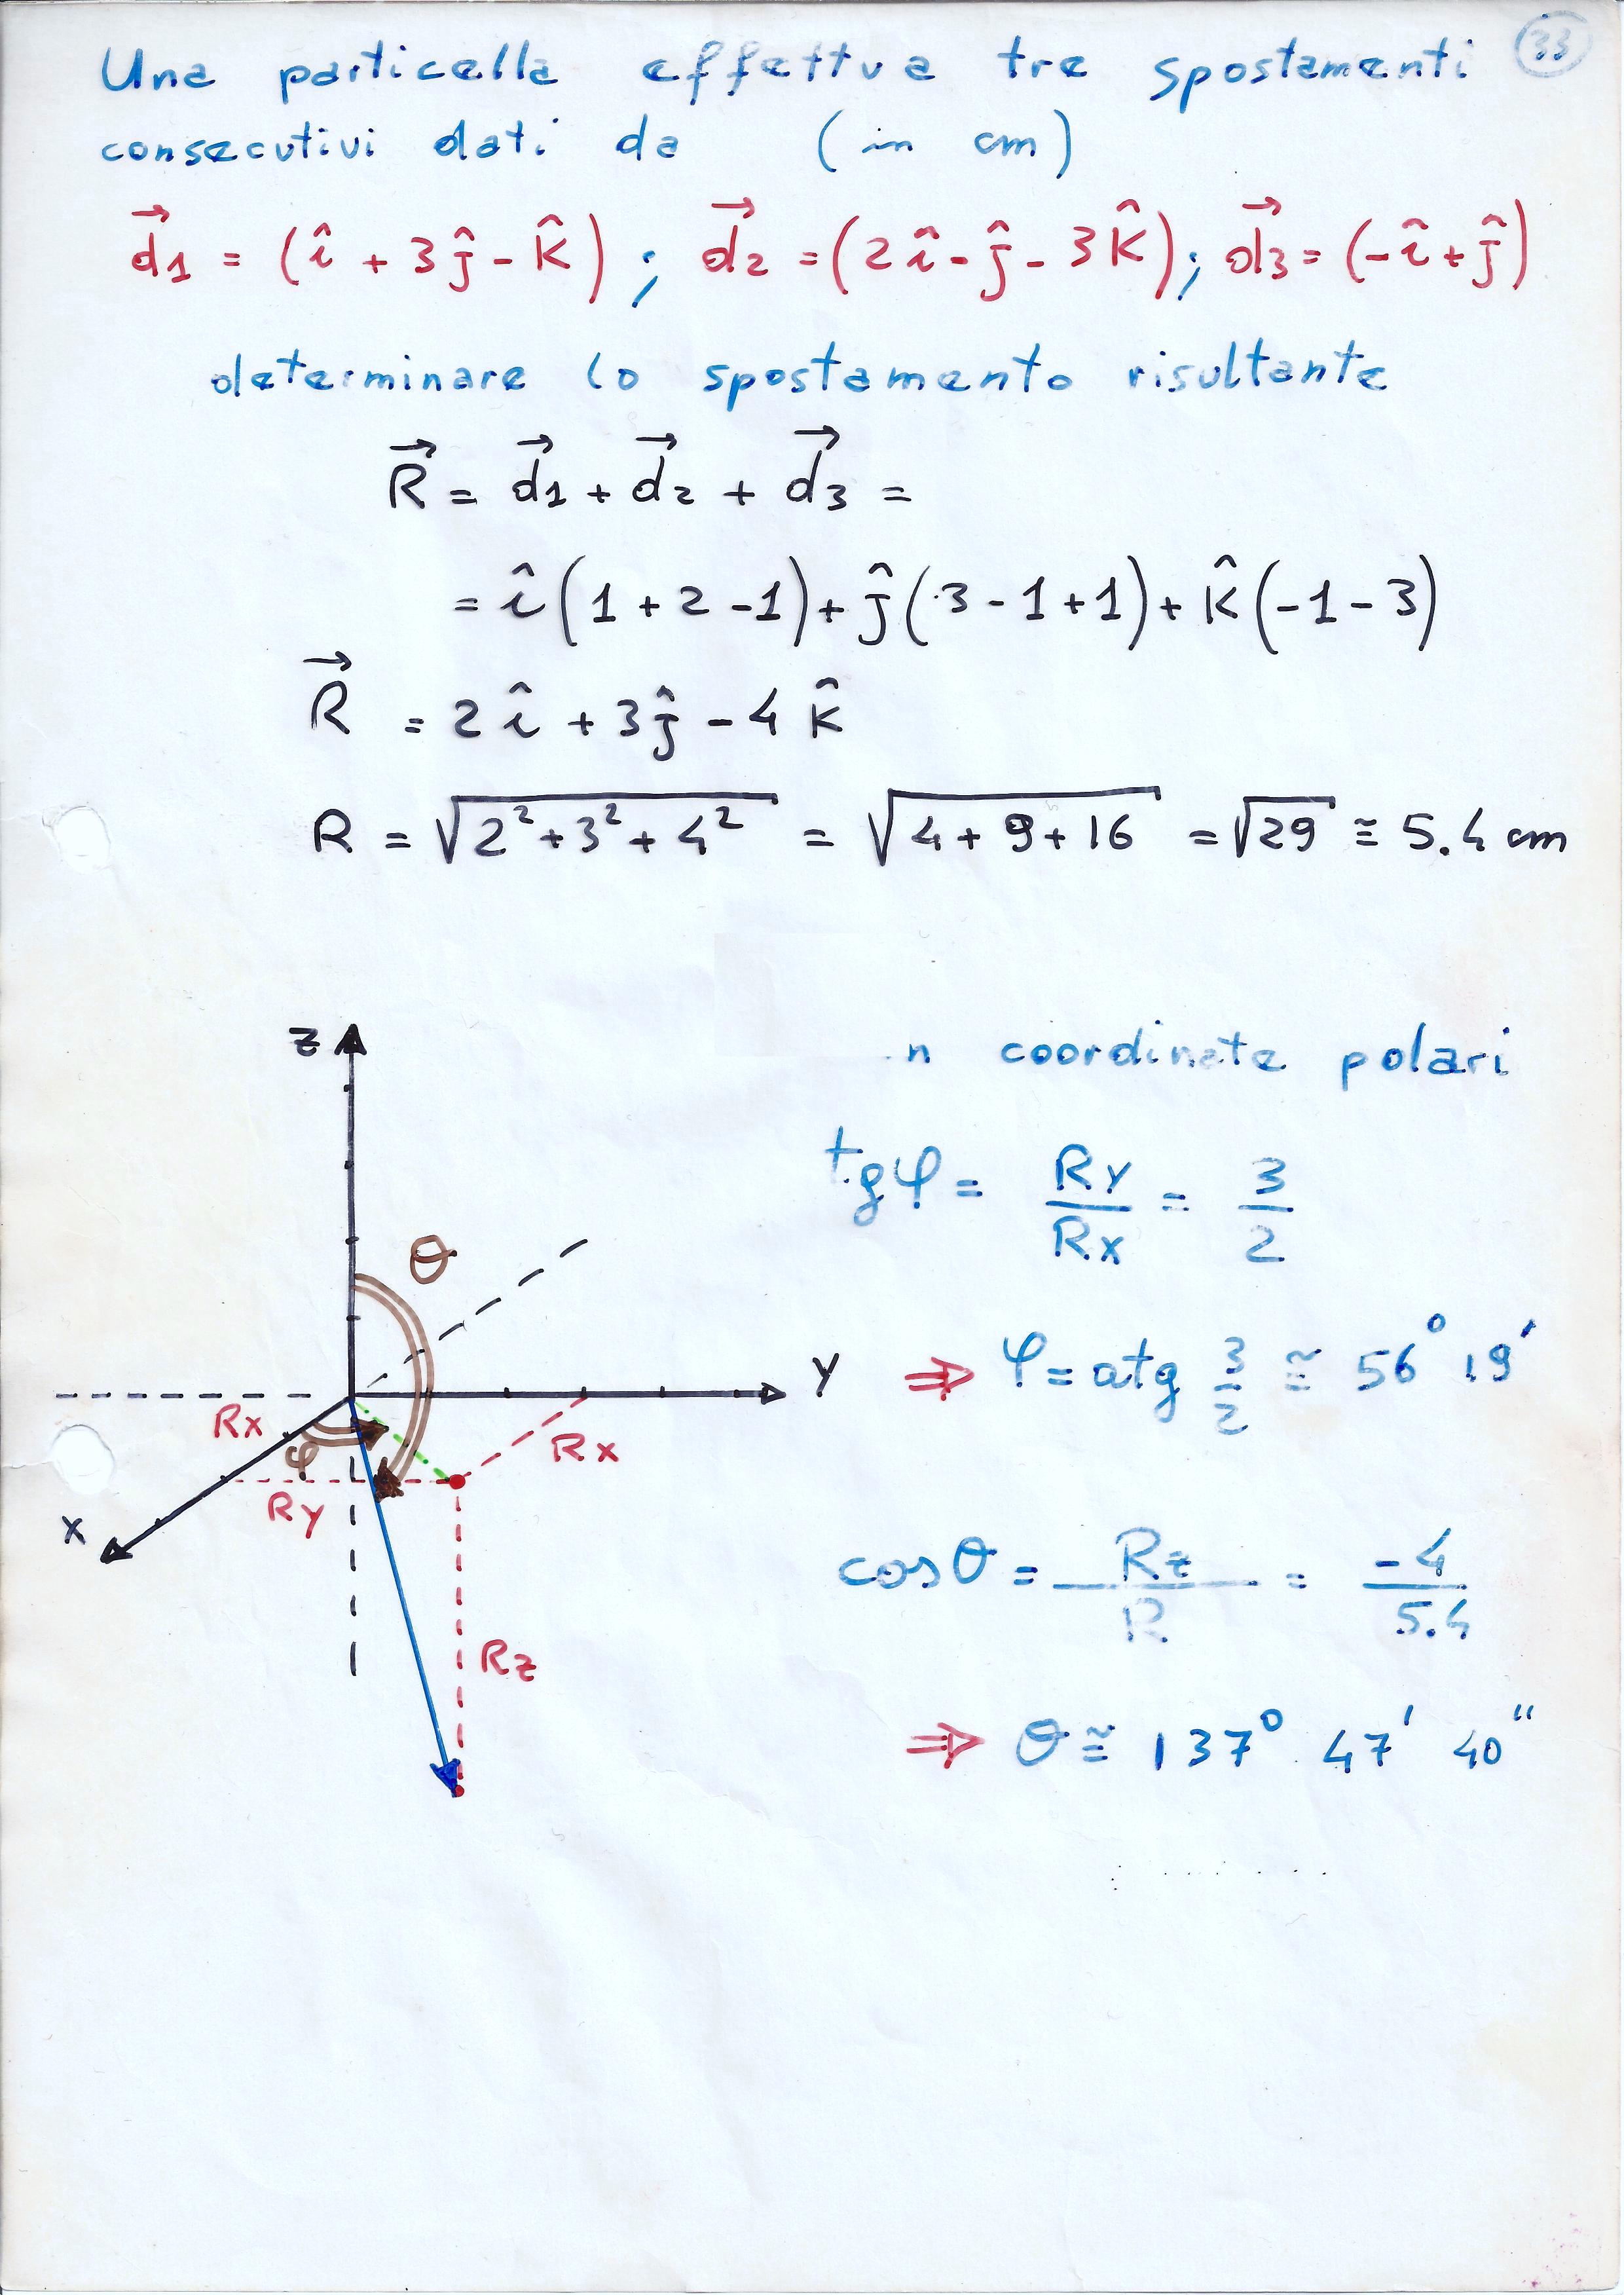 33
Una particella effettua tre spostamenti
consecutivi dati da (in cm)
d⃗1 = (î + 3ĵ - k̂) ; d⃗2 = (2î - ĵ - 3k̂) ; d⃗3 = (-î + ĵ)
determinare lo spostamento risultante
R⃗ = d⃗1 + d⃗2 + d⃗3 =
= î (1 + 2 - 1) + ĵ (3 - 1 + 1) + k̂ (-1 - 3)
R⃗ = 2î + 3ĵ - 4k̂
R = √(2² + 3² + 4²) = √(4 + 9 + 16) = √29 ≅ 5.4 cm
n coordinate polari
tgφ = Ry/Rx = 3/2
⇒ φ = atg 3/2 ≅ 56° 19'
cosθ = Rz/R = -4/5.4
⇒ θ ≅ 137° 47' 40"
z
θ
y
Rx
φ
Rx
Ry
x
Rz